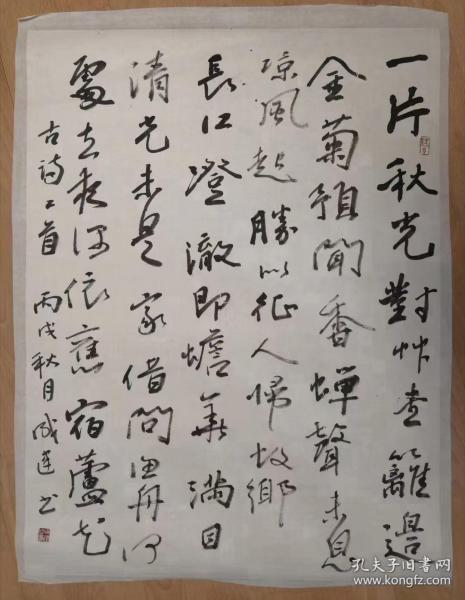 一片秋光對艸堂籬邊
金菊預聞香蟬聲未息
凉風起勝似征人帰故鄉
長江澄澈即蟾華滿目
清光未是家借問漁舟何
處去夜深依舊宿蘆花
古詩二首 丙戌秋月 成連书
孔夫子旧书网
www.kongfz.com